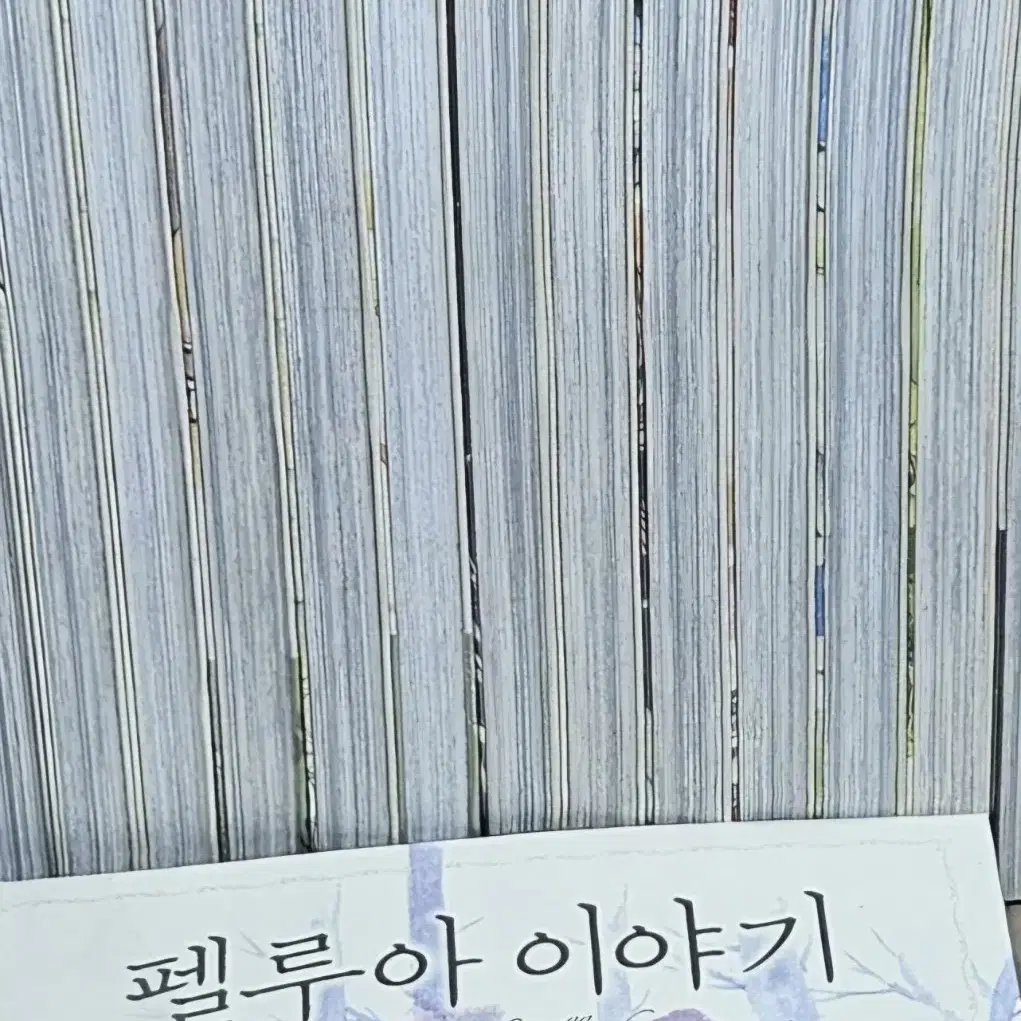 펠루아 이야기